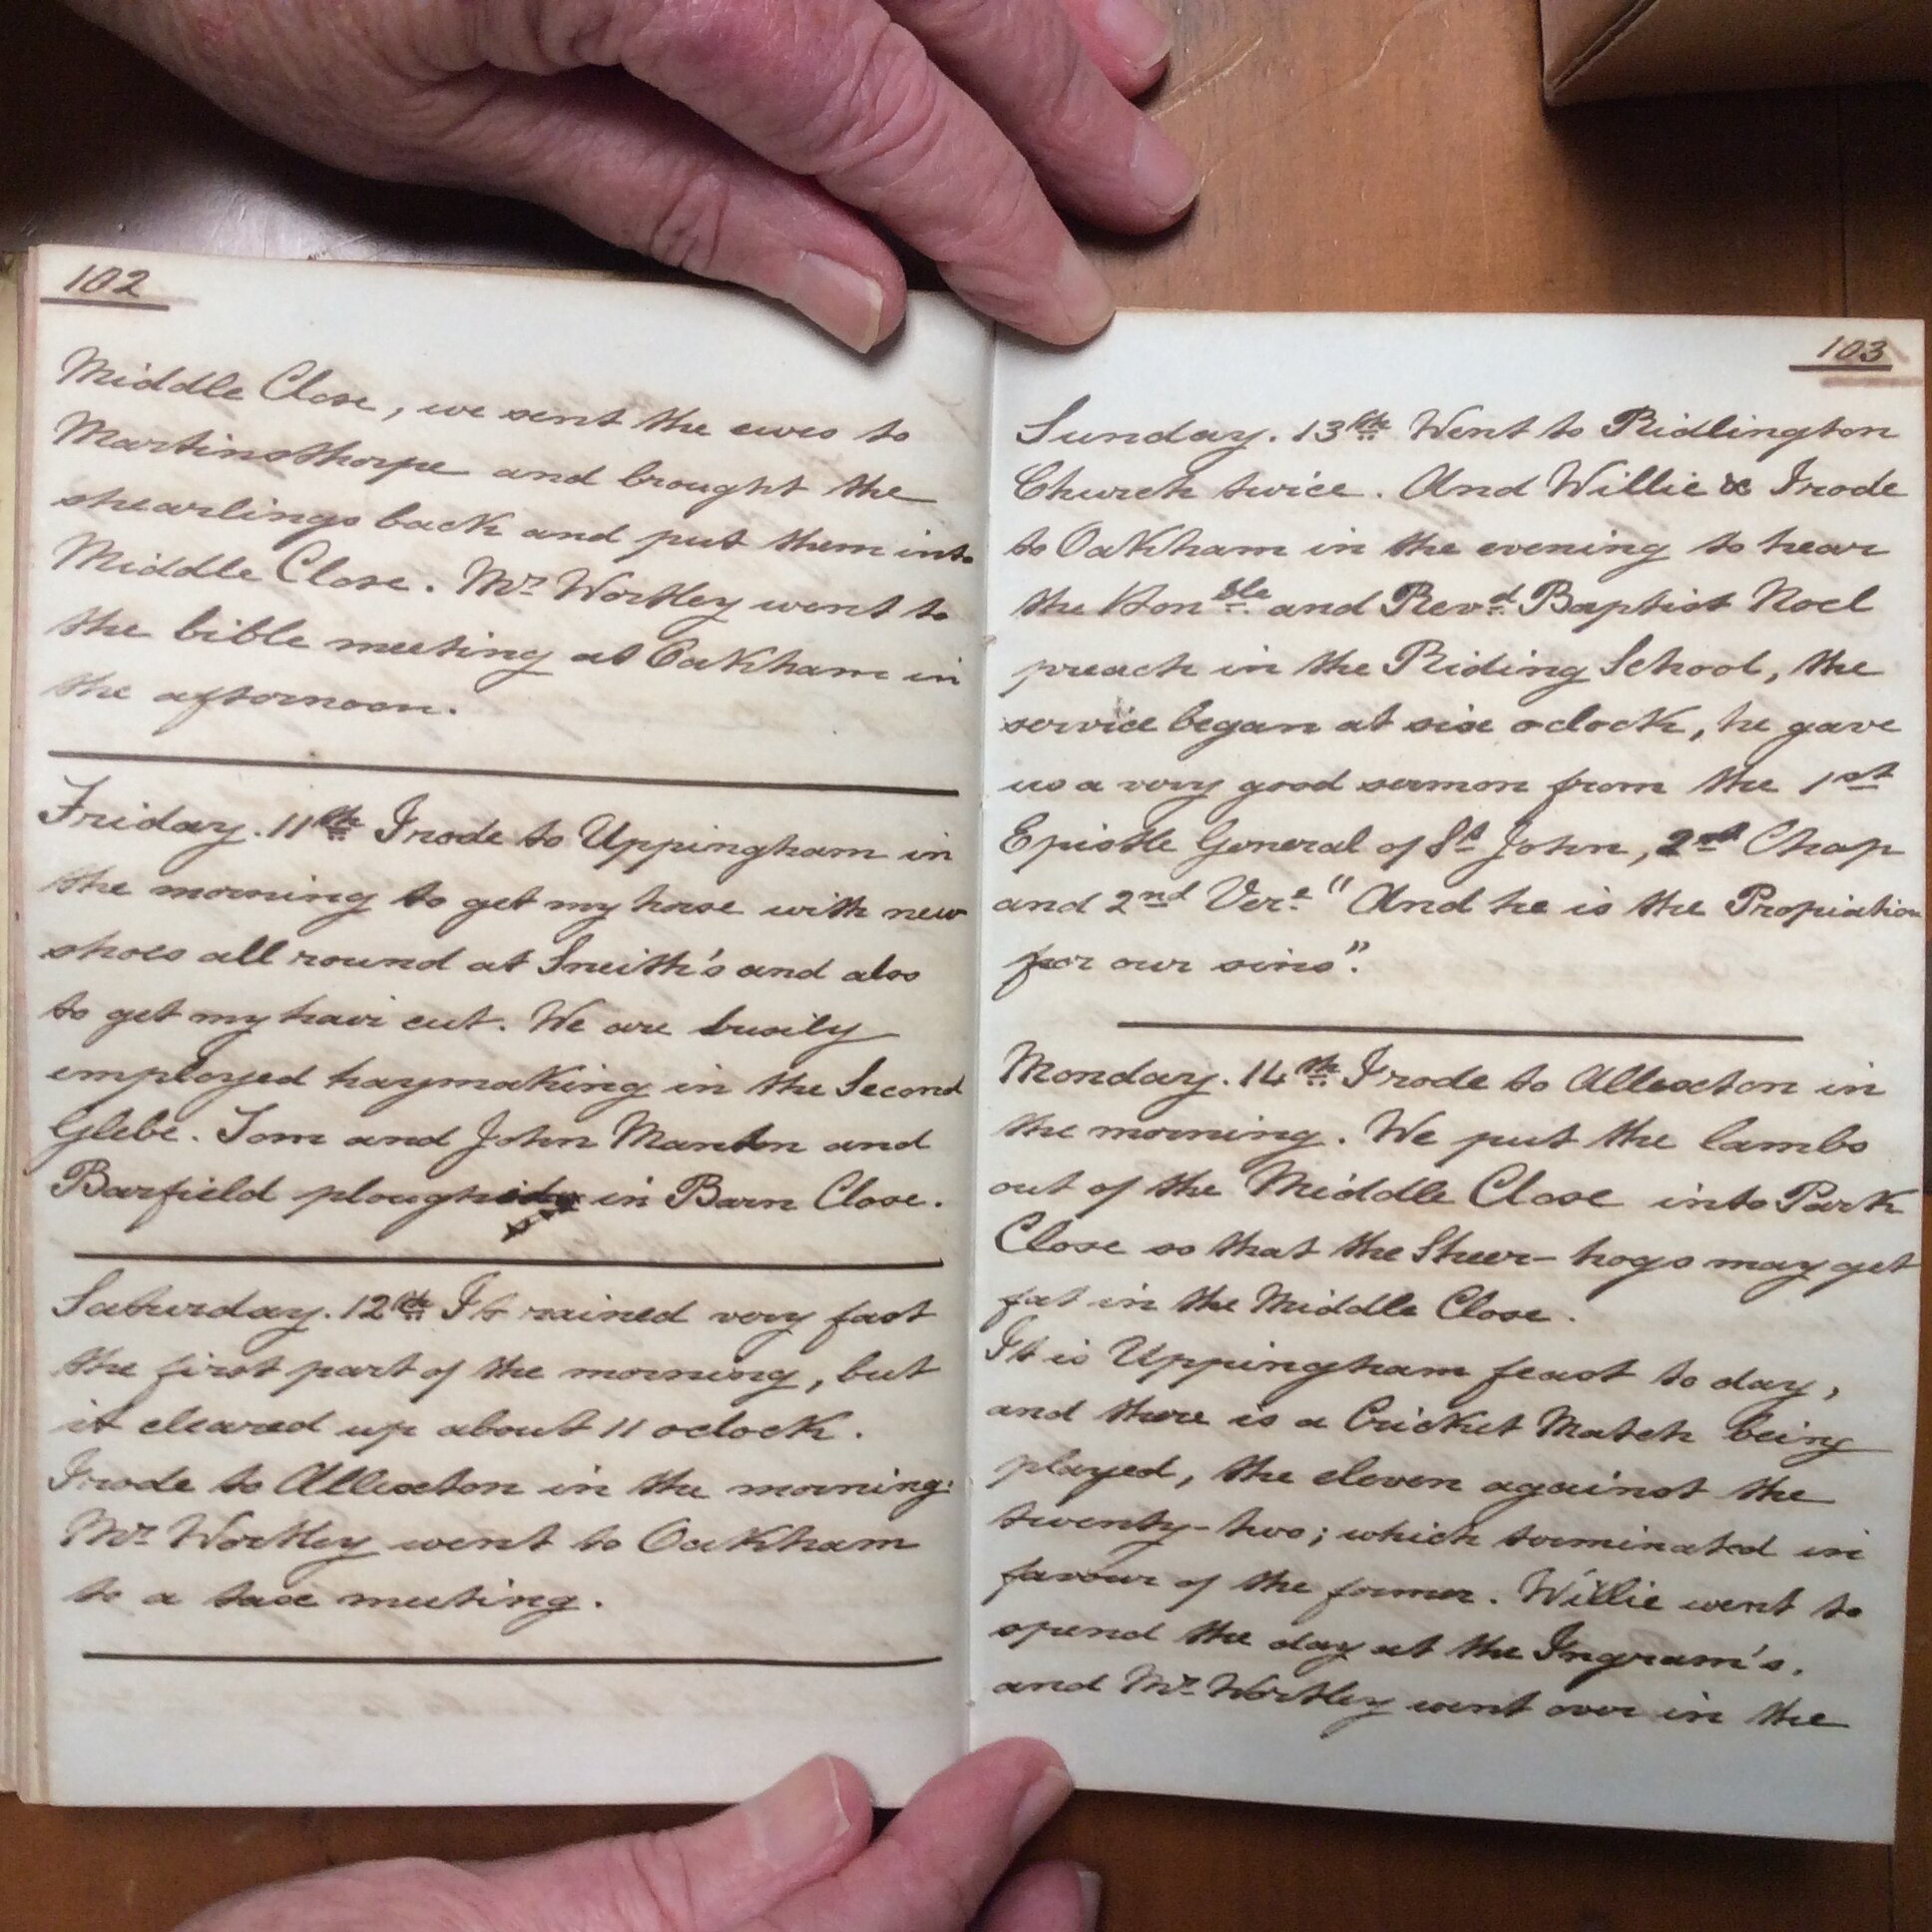 102
Middle Close, we sent the ewes to
Martinsthorpe and brought the
shearlings back and put them into
Middle Close. Mr Wortley went to
the bible meeting at Oakham in
the afternoon.
Friday. 11th I rode to Uppingham in
the morning to get my horse with new
shoes all round at Sneith's and also
to get my hair cut. We are busily
employed haymaking in the Second
Glebe. Tom and John Manton and
Barfield plough in Barn Close.
Saturday. 12th It rained very fast
the first part of the morning, but
it cleared up about 11 oclock.
I rode to Allexton in the morning.
Mr Wortley went to Oakham
to a tax meeting.
103
Sunday. 13th Went to Ridlington
Church twice. And Willie & I rode
to Oakham in the evening to hear
the Honble and Revd Baptist Noel
preach in the Riding School, the
service began at six oclock, he gave
us a very good sermon from the 1st
Epistle General of St John, 2nd Chap
and 2nd Vere "And he is the Propiation
for our sins".
Monday. 14th I rode to Allexton in
the morning. We put the lambs
out of the Middle Close into Park
Close so that the Sheer-hogs may get
fat in the Middle Close.
It is Uppingham feast to day,
and there is a Cricket Match being
played, the eleven against the
twenty-two; which terminated in
favour of the former. Willie went to
spend the day at the Ingram's,
and Mr Wortley went over in the